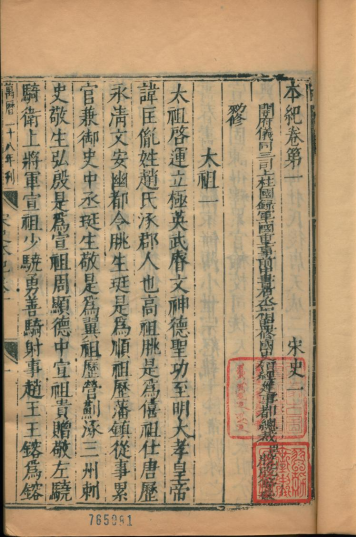 本紀卷第一 宋史一
開府儀同三司上柱國錄軍國重事前中書右丞相監修國史領經筵事都總裁臣脫脫等
勑修
太祖一
太祖啓運立極英武睿文神德聖功至明大孝皇帝
諱匡胤姓趙氏涿郡人也高祖朓是爲僖祖仕唐歷
永清文安幽都令朓生珽是爲順祖歷藩鎮從事累
官兼御史中丞珽生敬是爲翼祖歷營薊涿三州刺
史敬生弘殷是爲宣祖周顯德中宣祖貴贈敬左驍
騎衛上將軍宣祖少驍勇善騎射事趙王王鎔爲鎔
萬曆二十八年刊
765981